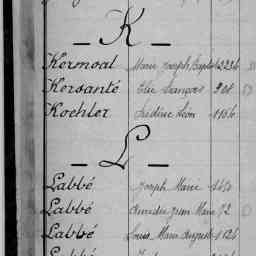 — K —
Kermoal Marie Joseph Baptiste 2234
Kersanté Elie François 908
Koehler Médéric Léon 1156
— L —
Labbé Joseph Marie
Labbé Amédée Jean Marie 72
Labbé Louis Marie Auguste 1124